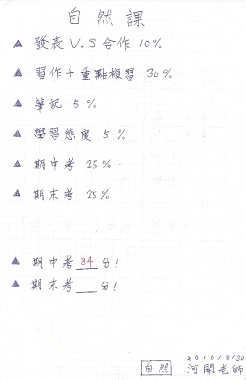 自然課
▲ 發表 V.S 合作 10%
▲ 習作+重點複習 30%
▲ 筆記 5%
▲ 學習態度 5%
▲ 期中考 25%
▲ 期末考 25%
▲ 期中考 84 分!
▲ 期末考 ___ 分!
2010/8/30
自然 河開老師